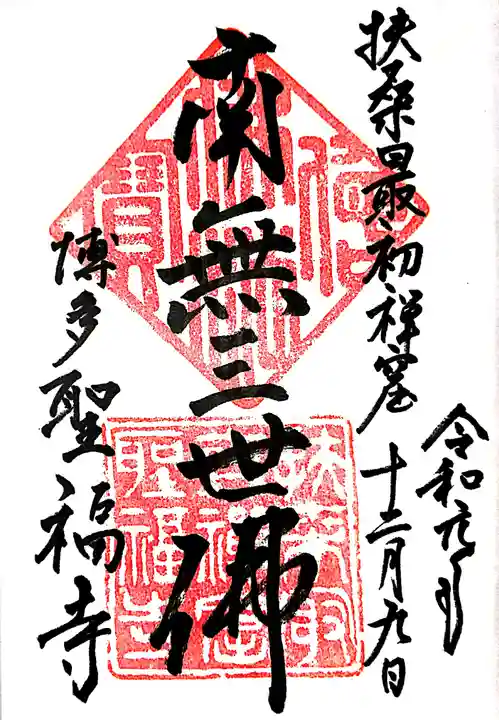 扶桑最初禅窟
令和元年
十二月九日
南無三世佛
博多聖福寺